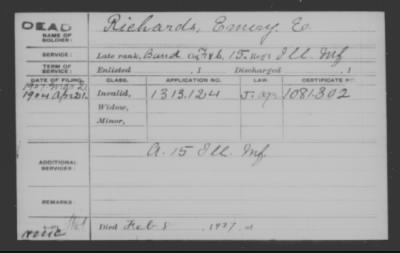 DEAD
NAME OF SOLDIER:
Richards, Emery E.
SERVICE:
Late rank, Band Co. F & G, 15. Reg't Ill. Inf
TERM OF SERVICE:
Enlisted , 1 Discharged , 1
DATE OF FILING. CLASS. APPLICATION NO. LAW. CERTIFICATE NO.
1904 Apr 21. Invalid, 1313.124 J. ap. 1081.302
Widow,
Minor,
ADDITIONAL SERVICES:
A. 15 Ill. Inf.
REMARKS:
Died Feb 8 , 1927, at